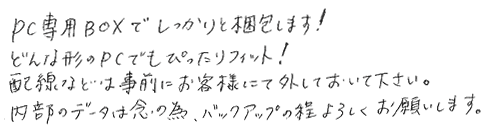 PC専用BOXでしっかりと梱包します!
どんな形のPCでもぴったりフィット!
配線などは事前にお客様にて外しておいて下さい。
内部のデータは念の為、バックアップの程よろしくお願いします。